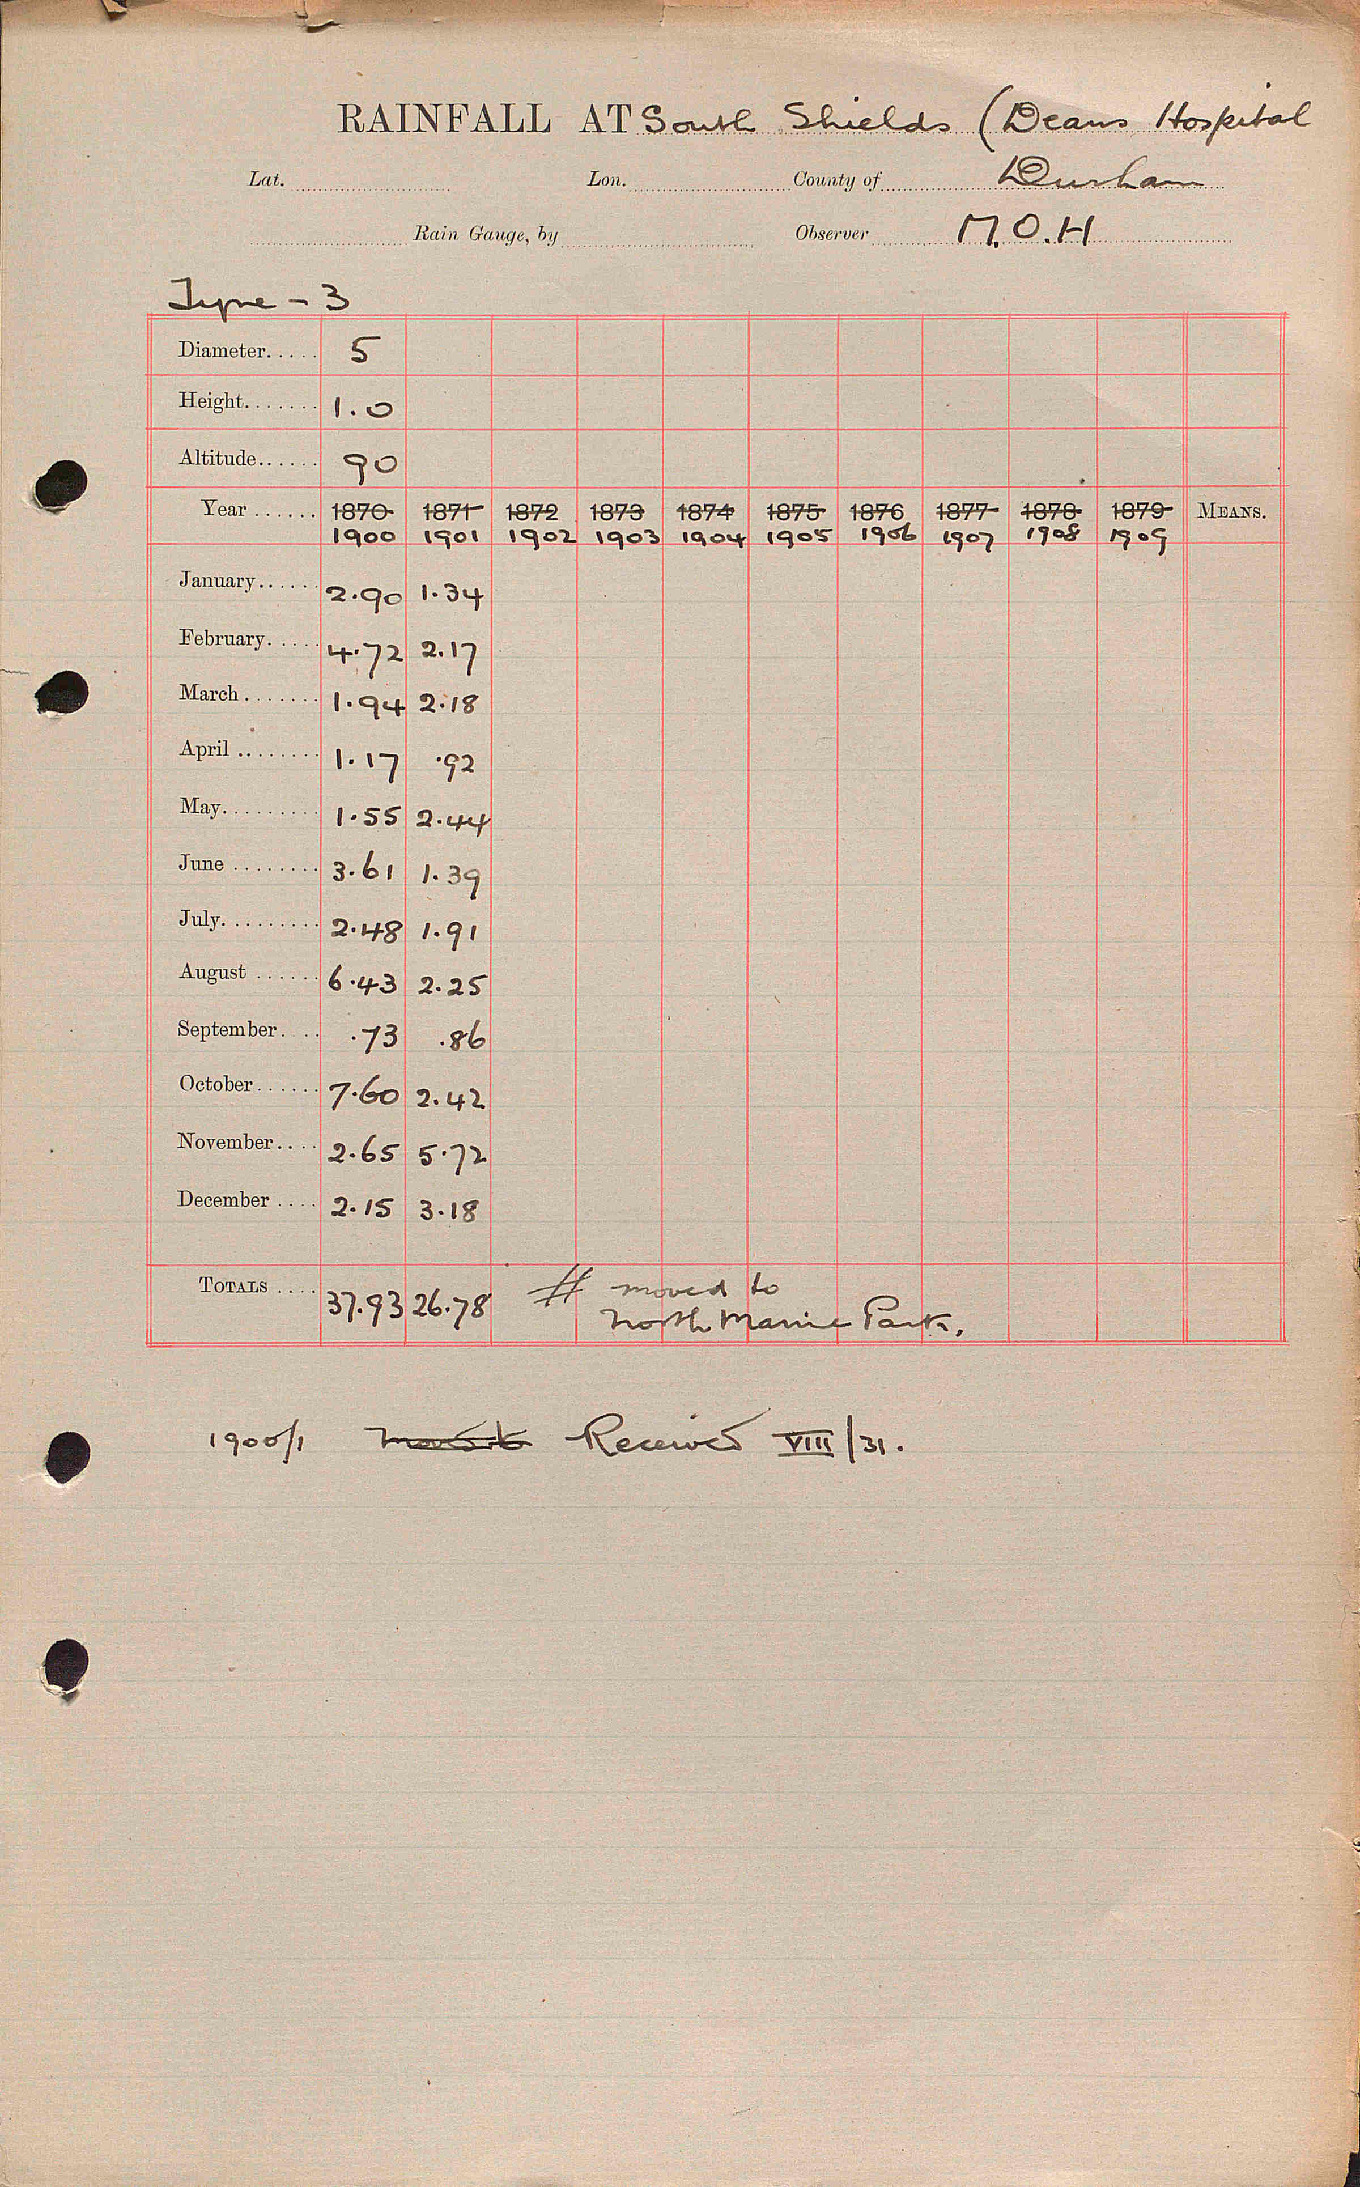 RAINFALL AT South Shields (Deans Hospital
Lat. Lon. County of Durham
Rain Gauge, by Observer M.O.H
Tyne - 3
Diameter..... 5
Height....... 1.0
Altitude...... 90
Year ...... 1870 1871 1872 1873 1874 1875 1876 1877 1878 1879 MEANS.
1900 1901 1902 1903 1904 1905 1906 1907 1908 1909
January...... 2.90 1.34
February..... 4.72 2.17
March....... 1.94 2.18
April ........ 1.17 .92
May......... 1.55 2.44
June ........ 3.61 1.39
July......... 2.48 1.91
August ...... 6.43 2.25
September.... .73 .86
October...... 7.60 2.42
November.... 2.65 5.72
December .... 2.15 3.18
TOTALS .... 37.93 26.78 # moved to
North Marine Park.
1900/1 Received VIII/31.